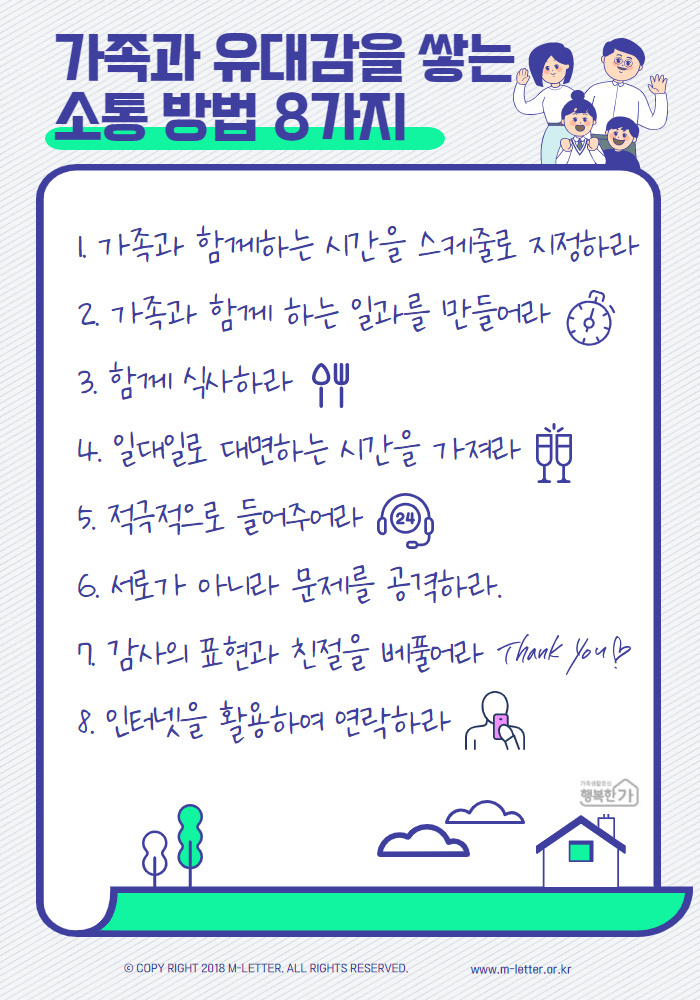 가족과 유대감을 쌓는
소통 방법 8가지
1. 가족과 함께하는 시간을 스케줄로 지정하라
2. 가족과 함께 하는 일과를 만들어라
3. 함께 식사하라
4. 일대일로 대면하는 시간을 가져라
5. 적극적으로 들어주어라
24
6. 서로가 아니라 문제를 공격하라.
7. 감사의 표현과 친절을 베풀어라 Thank You
8. 인터넷을 활용하여 연락하라
가족생활정보
행복한가
© COPY RIGHT 2018 M-LETTER. ALL RIGHTS RESERVED.
www.m-letter.or.kr